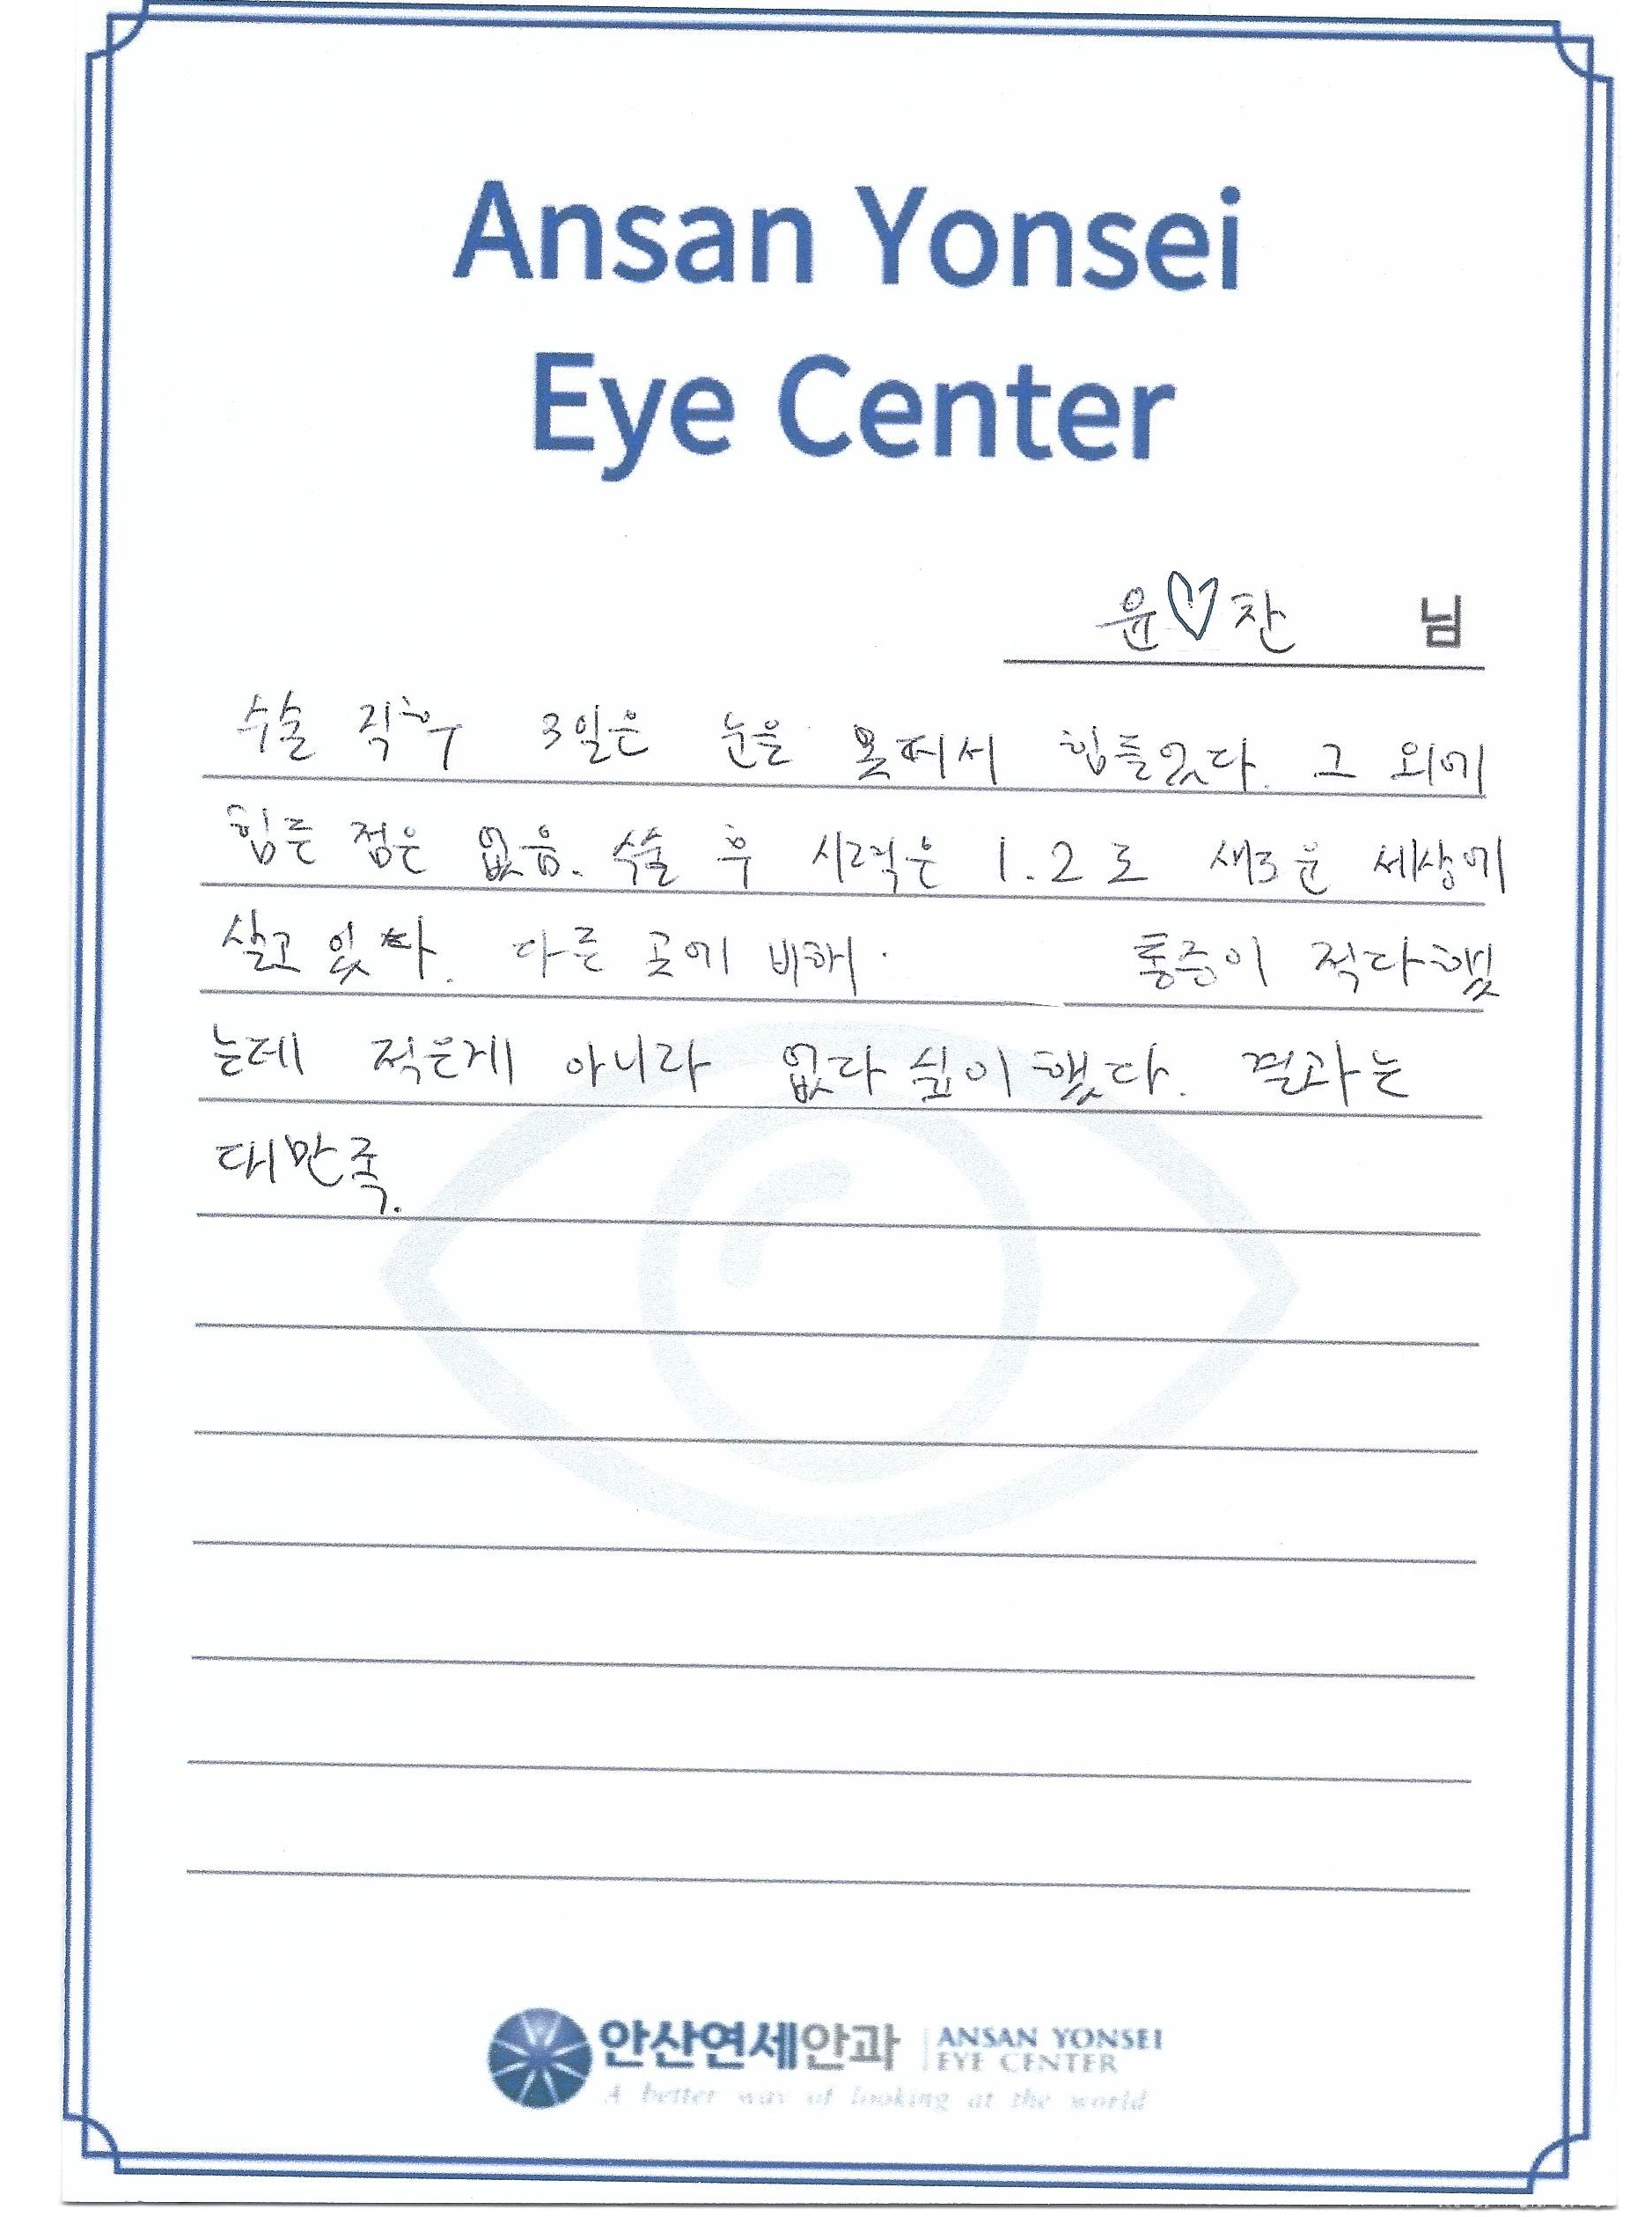 Ansan Yonsei
Eye Center
윤♡찬 님
수술 직후 3일은 눈을 못떠서 힘들었다. 그 외에
힘든 점은 없음. 수술 후 시력은 1.2로 새로운 세상에
살고 있다. 다른 곳에 비해 통증이 적다했
는데 적은게 아니라 없다 싶이 했다. 결과는
대만족.
안산연세안과 ANSAN YONSEI
EYE CENTER
A better way of looking at the world